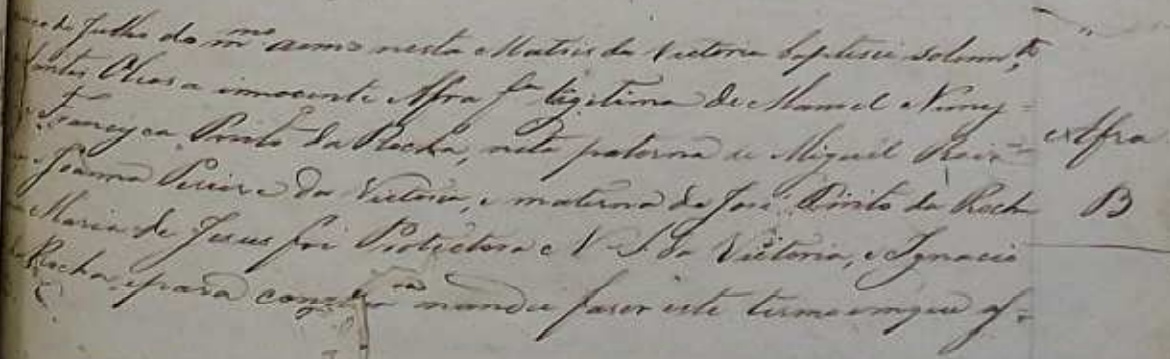 de Julho do mmo anno nesta Matris da Victoria baptisei solemnte
Santos Oleos a innocente Afra fa legitima de Manoel Nunes
Francisca Pinto da Rocha, neta paterna de Miguel
Joanna Pereira da Victoria, e materna de José Pinto da Rocha
Maria de Jesus foi Protectora N. S. da Victoria, e Ignacio
da Rocha, e para mandei faser este termo em que as-
Afra
B